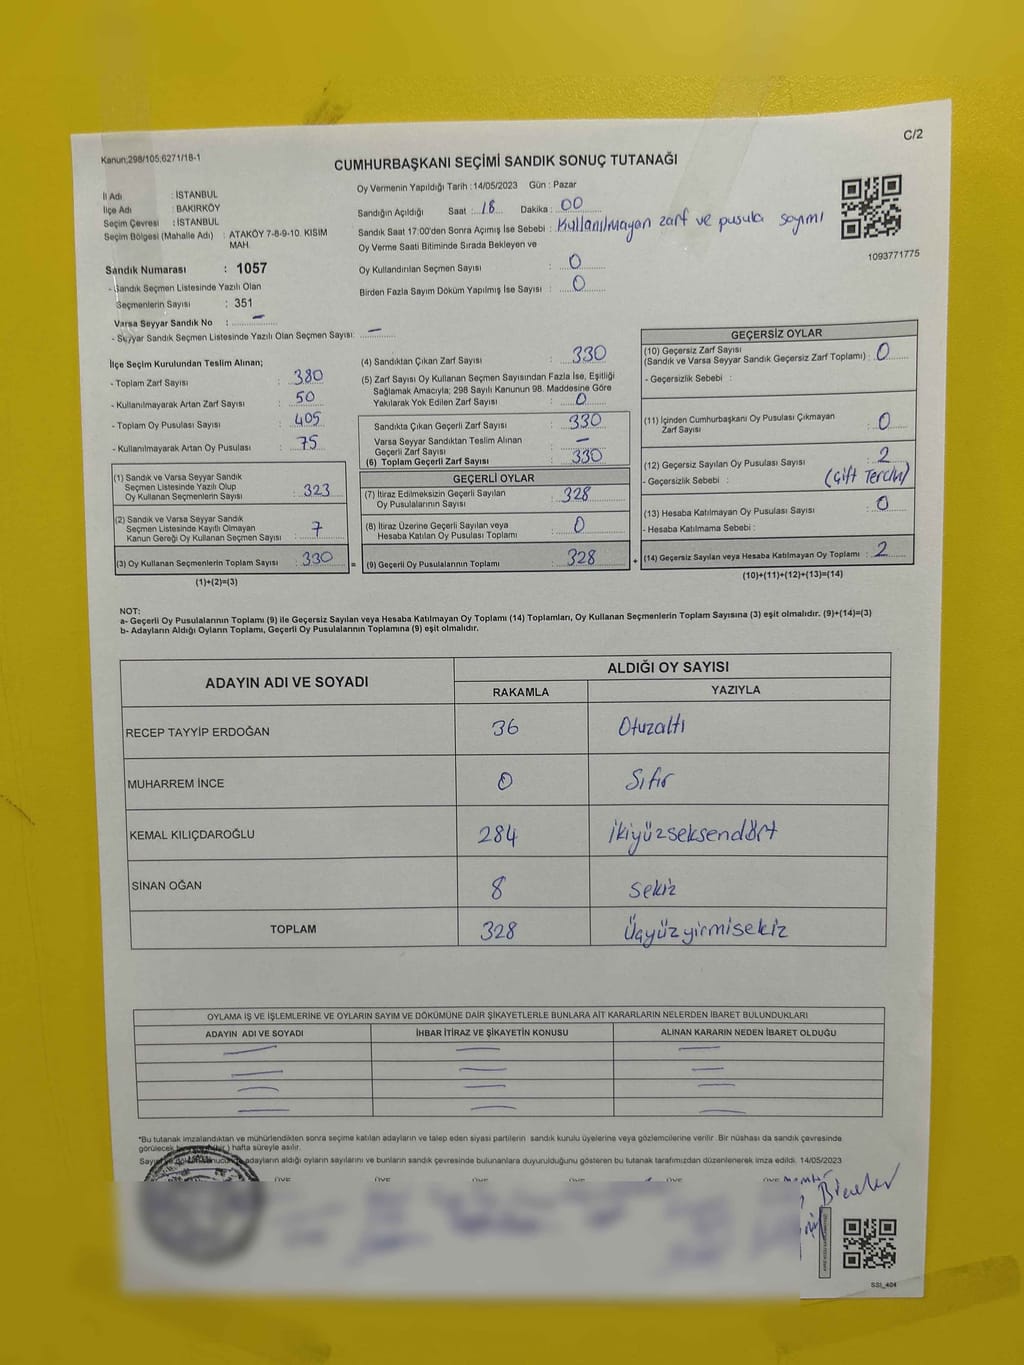 C/2
Kanun;298/105;6271/18-1
CUMHURBAŞKANI SEÇİMİ SANDIK SONUÇ TUTANAĞI
İl Adı : İSTANBUL
İlçe Adı : BAKIRKÖY
Seçim Çevresi : İSTANBUL
Seçim Bölgesi (Mahalle Adı) : ATAKÖY 7-8-9-10. KISIM
MAH.
Sandık Numarası : 1057
- Sandık Seçmen Listesinde Yazılı Olan
Seçmenlerin Sayısı : 351
Varsa Seyyar Sandık No : –
- Seyyar Sandık Seçmen Listesinde Yazılı Olan Seçmen Sayısı: –
Oy Vermenin Yapıldığı Tarih :14/05/2023 Gün : Pazar
Sandığın Açıldığı Saat : 18 Dakika : 00
Sandık Saat 17:00'den Sonra Açımış İse Sebebi : Kullanılmayan zarf ve pusula sayımı
Oy Verme Saati Bitiminde Sırada Bekleyen ve
Oy Kullandırılan Seçmen Sayısı : 0
Birden Fazla Sayım Döküm Yapılmış İse Sayısı : 0
1093771775
İlçe Seçim Kurulundan Teslim Alınan;
- Toplam Zarf Sayısı : 380
- Kullanılmayarak Artan Zarf Sayısı : 50
- Toplam Oy Pusulası Sayısı : 405
- Kullanılmayarak Artan Oy Pusulası : 75
(1) Sandık ve Varsa Seyyar Sandık
Seçmen Listesinde Yazılı Olup
Oy Kullanan Seçmenlerin Sayısı : 323
(2) Sandık ve Varsa Seyyar Sandık
Seçmen Listesinde Kayıtlı Olmayan
Kanun Gereği Oy Kullanan Seçmen Sayısı : 7
(3) Oy Kullanan Seçmenlerin Toplam Sayısı : 330
(1)+(2)=(3)
=
(4) Sandıktan Çıkan Zarf Sayısı : 330
(5) Zarf Sayısı Oy Kullanan Seçmen Sayısından Fazla İse, Eşitliği
Sağlamak Amacıyla; 298 Sayılı Kanunun 98. Maddesine Göre
Yakılarak Yok Edilen Zarf Sayısı : 0
Sandıkta Çıkan Geçerli Zarf Sayısı : 330
Varsa Seyyar Sandıktan Teslim Alınan
Geçerli Zarf Sayısı : –
(6) Toplam Geçerli Zarf Sayısı : 330
GEÇERLİ OYLAR
(7) İtiraz Edilmeksizin Geçerli Sayılan
Oy Pusulalarının Sayısı : 328
(8) İtiraz Üzerine Geçerli Sayılan veya
Hesaba Katılan Oy Pusulası Toplamı : 0
(9) Geçerli Oy Pusulalarının Toplamı : 328
+
GEÇERSİZ OYLAR
(10) Geçersiz Zarf Sayısı
(Sandık ve Varsa Seyyar Sandık Geçersiz Zarf Toplamı) : 0
- Geçersizlik Sebebi :
(11) İçinden Cumhurbaşkanı Oy Pusulası Çıkmayan
Zarf Sayısı : 0
(12) Geçersiz Sayılan Oy Pusulası Sayısı : 2
- Geçersizlik Sebebi : (Çift Tercih)
(13) Hesaba Katılmayan Oy Pusulası Sayısı : 0
- Hesaba Katılmama Sebebi :
(14) Geçersiz Sayılan veya Hesaba Katılmayan Oy Toplamı : 2
(10)+(11)+(12)+(13)=(14)
NOT:
a- Geçerli Oy Pusulalarının Toplamı (9) ile Geçersiz Sayılan veya Hesaba Katılmayan Oy Toplamı (14) Toplamları, Oy Kullanan Seçmenlerin Toplam Sayısına (3) eşit olmalıdır. (9)+(14)=(3)
b- Adayların Aldığı Oyların Toplamı, Geçerli Oy Pusulalarının Toplamına (9) eşit olmalıdır.
ADAYIN ADI VE SOYADI ALDIĞI OY SAYISI
RAKAMLA YAZIYLA
RECEP TAYYİP ERDOĞAN 36 Otuzaltı
MUHARREM İNCE 0 Sıfır
KEMAL KILIÇDAROĞLU 284 İkiyüzseksendört
SİNAN OĞAN 8 Sekiz
TOPLAM 328 Üçyüzyirmisekiz
OYLAMA İŞ VE İŞLEMLERİNE VE OYLARIN SAYIM VE DÖKÜMÜNE DAİR ŞİKAYETLERLE BUNLARA AİT KARARLARIN NELERDEN İBARET BULUNDUKLARI
ADAYIN ADI VE SOYADI İHBAR İTİRAZ VE ŞİKAYETİN KONUSU ALINAN KARARIN NEDEN İBARET OLDUĞU
*Bu tutanak imzalandıktan ve mühürlendikten sonra seçime katılan adayların ve talep eden siyasi partilerin sandık kurulu üyelerine veya gözlemcilerine verilir. Bir nüshası da sandık çevresinde
görülecek hafta süreyle asılır.
adayların aldığı oyların sayılarını ve bunların sandık çevresinde bulunanlara duyurulduğunu gösteren bu tutanak tarafımızdan düzenlenerek imza edildi. 14/05/2023
ÜYE ÜYE ÜYE ÜYE ÜYE ÜYE
SSI_404